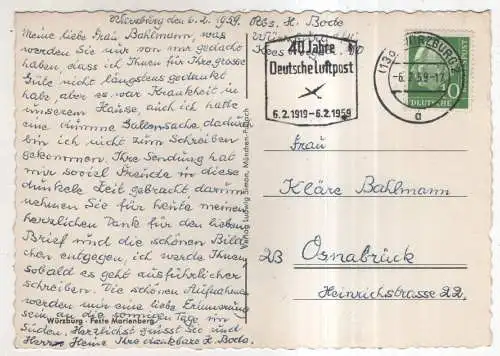 Würzburg den 6. 2. 1959.
Meine liebe Frau Bahlmann, was
werden Sie nur von mir gedacht
haben, dass ich Ihnen für Ihre grosse
Güte nicht längstens gedankt
habe, aber es war Krankheit in
unserem Hause, auch ich hatte
eine dumme Gallensache dadurch
bin ich nicht zum Schreiben
gekommen. Ihre Sendung hat
mir soviel Freude in diese
dunkele Zeit gebracht darum
nehmen Sie für heute meinen
herzlichen Dank für den lieben
Brief und die schönen Bild
chen entgegen, ich werde Ihnen
sobald es geht ausführlicher
schreiben. Die schönen Aufnahmen
werden mir eine liebe Erinnerung
sein an die sonnigen Tage im
Süden. Herzlichst grüsst Sie und
Herrn Heinz Ihre dankbare H. Bode.
Würzburg - Feste Marienberg
Verlag Ludwig Simon, München-Pullach
Abs. H. Bode
Würzburg
40 Jahre
Deutsche Luftpost
6.2.1919-6.2.1959
(13a) WÜRZBURG 2
-6.2.59-17
a
10
DEUTSCHE
Frau
Kläre Bahlmann
23 Osnabrück
Heinrichstrasse 22.